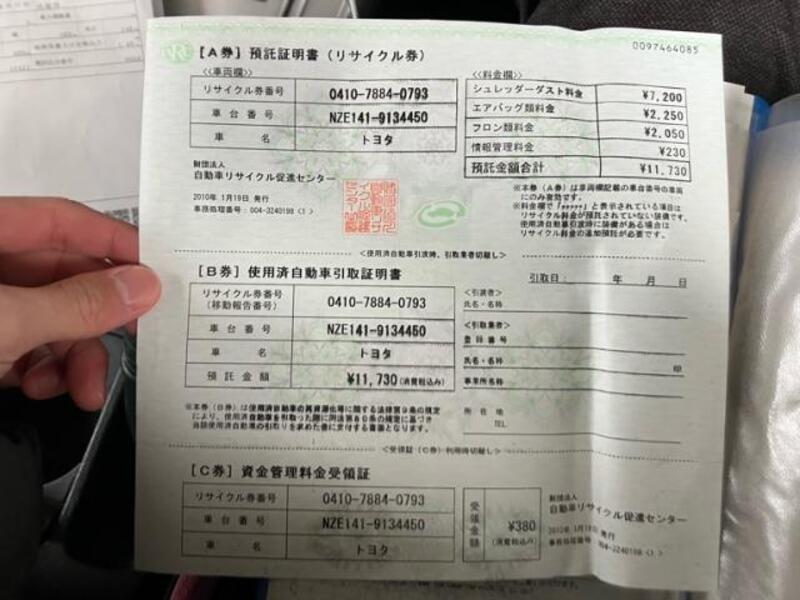 0097464085
[A券] 預託証明書（リサイクル券）
<<車両欄>>
リサイクル券番号 0410-7884-0793
車台番号 NZE141-9134450
車名 トヨタ
<<料金欄>>
シュレッダーダスト料金 ¥7,200
エアバッグ類料金 ¥2,250
フロン類料金 ¥2,050
情報管理料金 ¥230
預託金額合計 ¥11,730
財団法人
自動車リサイクル促進センター
2010年 1月19日 発行
事務処理番号：004-3240198〈1〉
※本券（A券）は車両欄記載の車台番号の車両
にのみ有効です。
※料金欄で「*****」と表示されている項目は
リサイクル料金が預託されていない装備です。
使用済自動車引渡時に装備がある場合は
リサイクル料金の追加預託が必要です。
<使用済自動車引渡時、引取業者切離し>
[B券] 使用済自動車引取証明書
引取日： 年 月 日
リサイクル券番号
（移動報告番号） 0410-7884-0793
車台番号 NZE141-9134450
車名 トヨタ
預託金額 ¥11,730（消費税込み）
<引渡者>
氏名・名称
<引取業者>
登録番号
氏名・名称 印
事業所名称
所在地
TEL
※本券（B券）は使用済自動車の再資源化等に関する法律第9条の規定
により、使用済自動車を引取った際に同法第80条の規定に基づき
当該使用済自動車の引取りを求めた者に交付する書面となります。
<受領証（C券）利用時切離し>
[C券] 資金管理料金受領証
リサイクル券番号 0410-7884-0793
車台番号 NZE141-9134450
車名 トヨタ
受領金額 ¥380
（消費税込み）
財団法人
自動車リサイクル促進センター
2010年 1月19日 発行
事務処理番号：004-3240198〈1〉